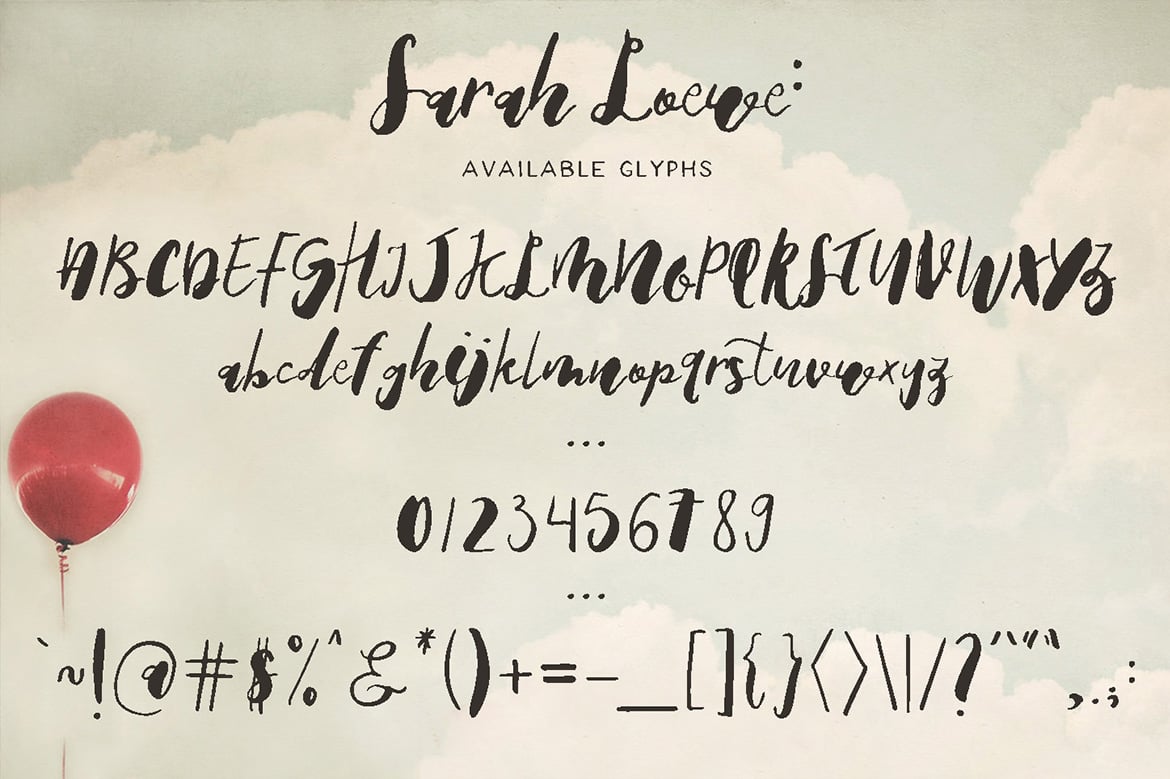 Sarah Loewe:
AVAILABLE GLYPHS
ABCDEFGHIJKLMNOPQRSTUVWXYZ
abcdefghijklmnopqrstuvwxyz
...
0123456789
...
`~!@#$%^&*()+=-_[]{}<>\|/?'"",.;: